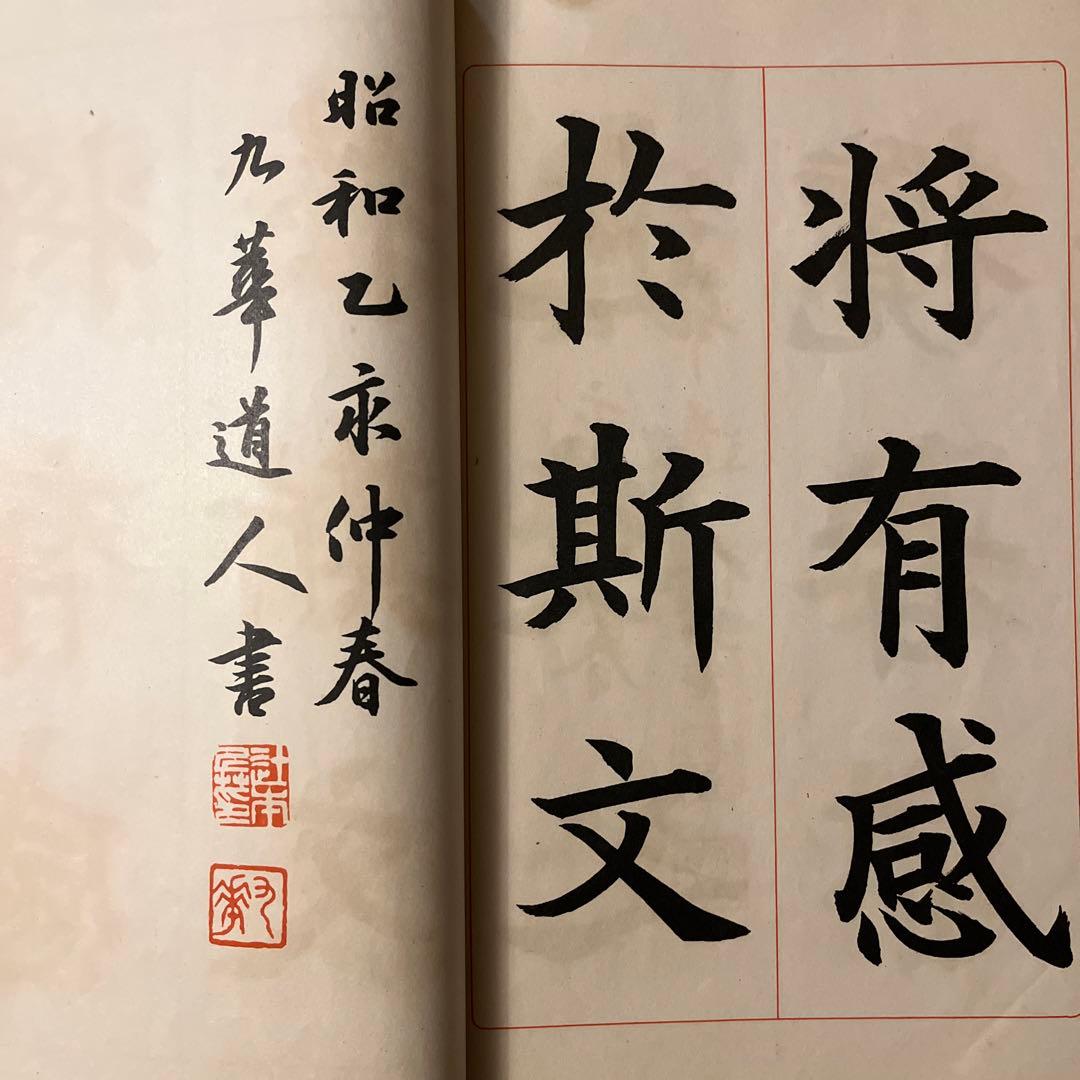 将有感
於斯文
昭和乙亥仲春
九華道人書
辻本
九華